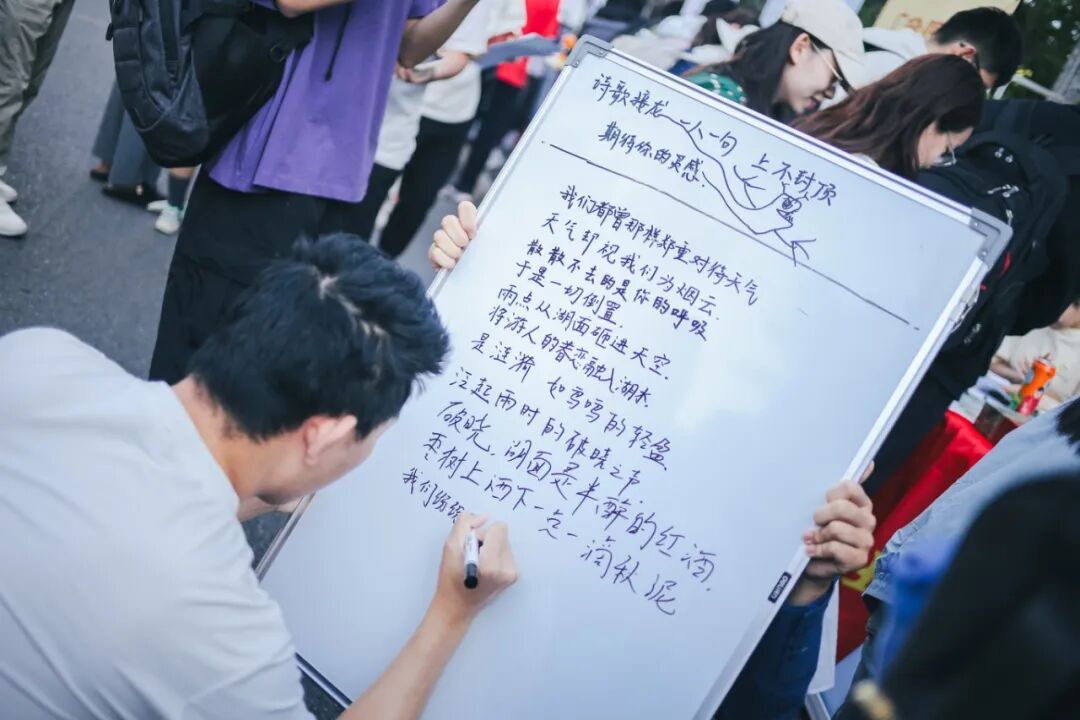 诗歌接龙 一人一句 上不封顶
期待你的灵感
我们都曾那样郑重对待天气
天气却视我们为烟云.
散散不去的是你的呼吸
于是一切倒置.
雨点从湖面砸进天空.
将游人的眷恋融入湖水.
是涟漪 如鸣鸣的轻盈
泛起雨时的破晓之声.
破晓.湖面是半醉的红酒.
枣树上洒下一点一滴秋泥
我们纷纷